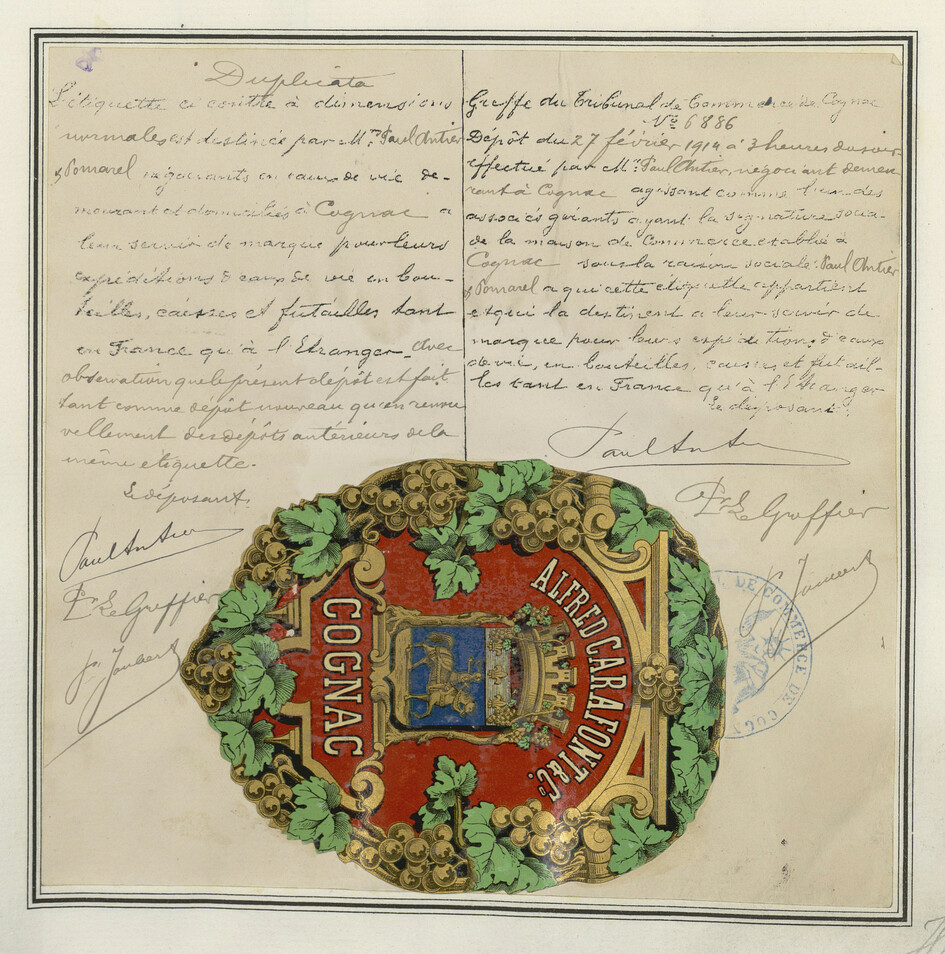 Duplicata
L'étiquette ci contre à dimensions
normales est destinée par Mrs Paul Antier
& Pomarel négociants en eaux de vie de-
meurant et domiciliés à Cognac a
leur servir de marque pour leurs
expéditions d'eaux de vie en bou-
teilles, caisses et futailles tant
en France qu'à l'Etranger. Avec
observation que le présent dépôt est fait
tant comme dépôt nouveau qu'en renou
vellement des dépôts antérieurs de la
même etiquette.
Le déposant,
Paul Antier
Pr. Le Greffier
Joubert
Greffe du Tribunal de Commerce de Cognac
No 6886
Dépôt du 27 février 1914 à 3 heures du soir
effectué par Mr. Paul Antier, négociant demeu
rant à Cognac agissant comme l'un des
associés gérants ayant la signature socia-
de la maison de Commerce etablie à
Cognac sous la raison sociale: Paul Antier
& Pomarel a qui cette étiquette appartient
et qui la destinent a leur servir de
marque pour leurs expédition d'eaux
de vie, en bouteilles, caisses et futail-
les tant en France qu'à l'Etranger
Le déposant.
Paul Antier
Pr. Le Greffier
Joubert
DE COMMERCE DE COGN
ALFRED CARAFONT & Co.
COGNAC